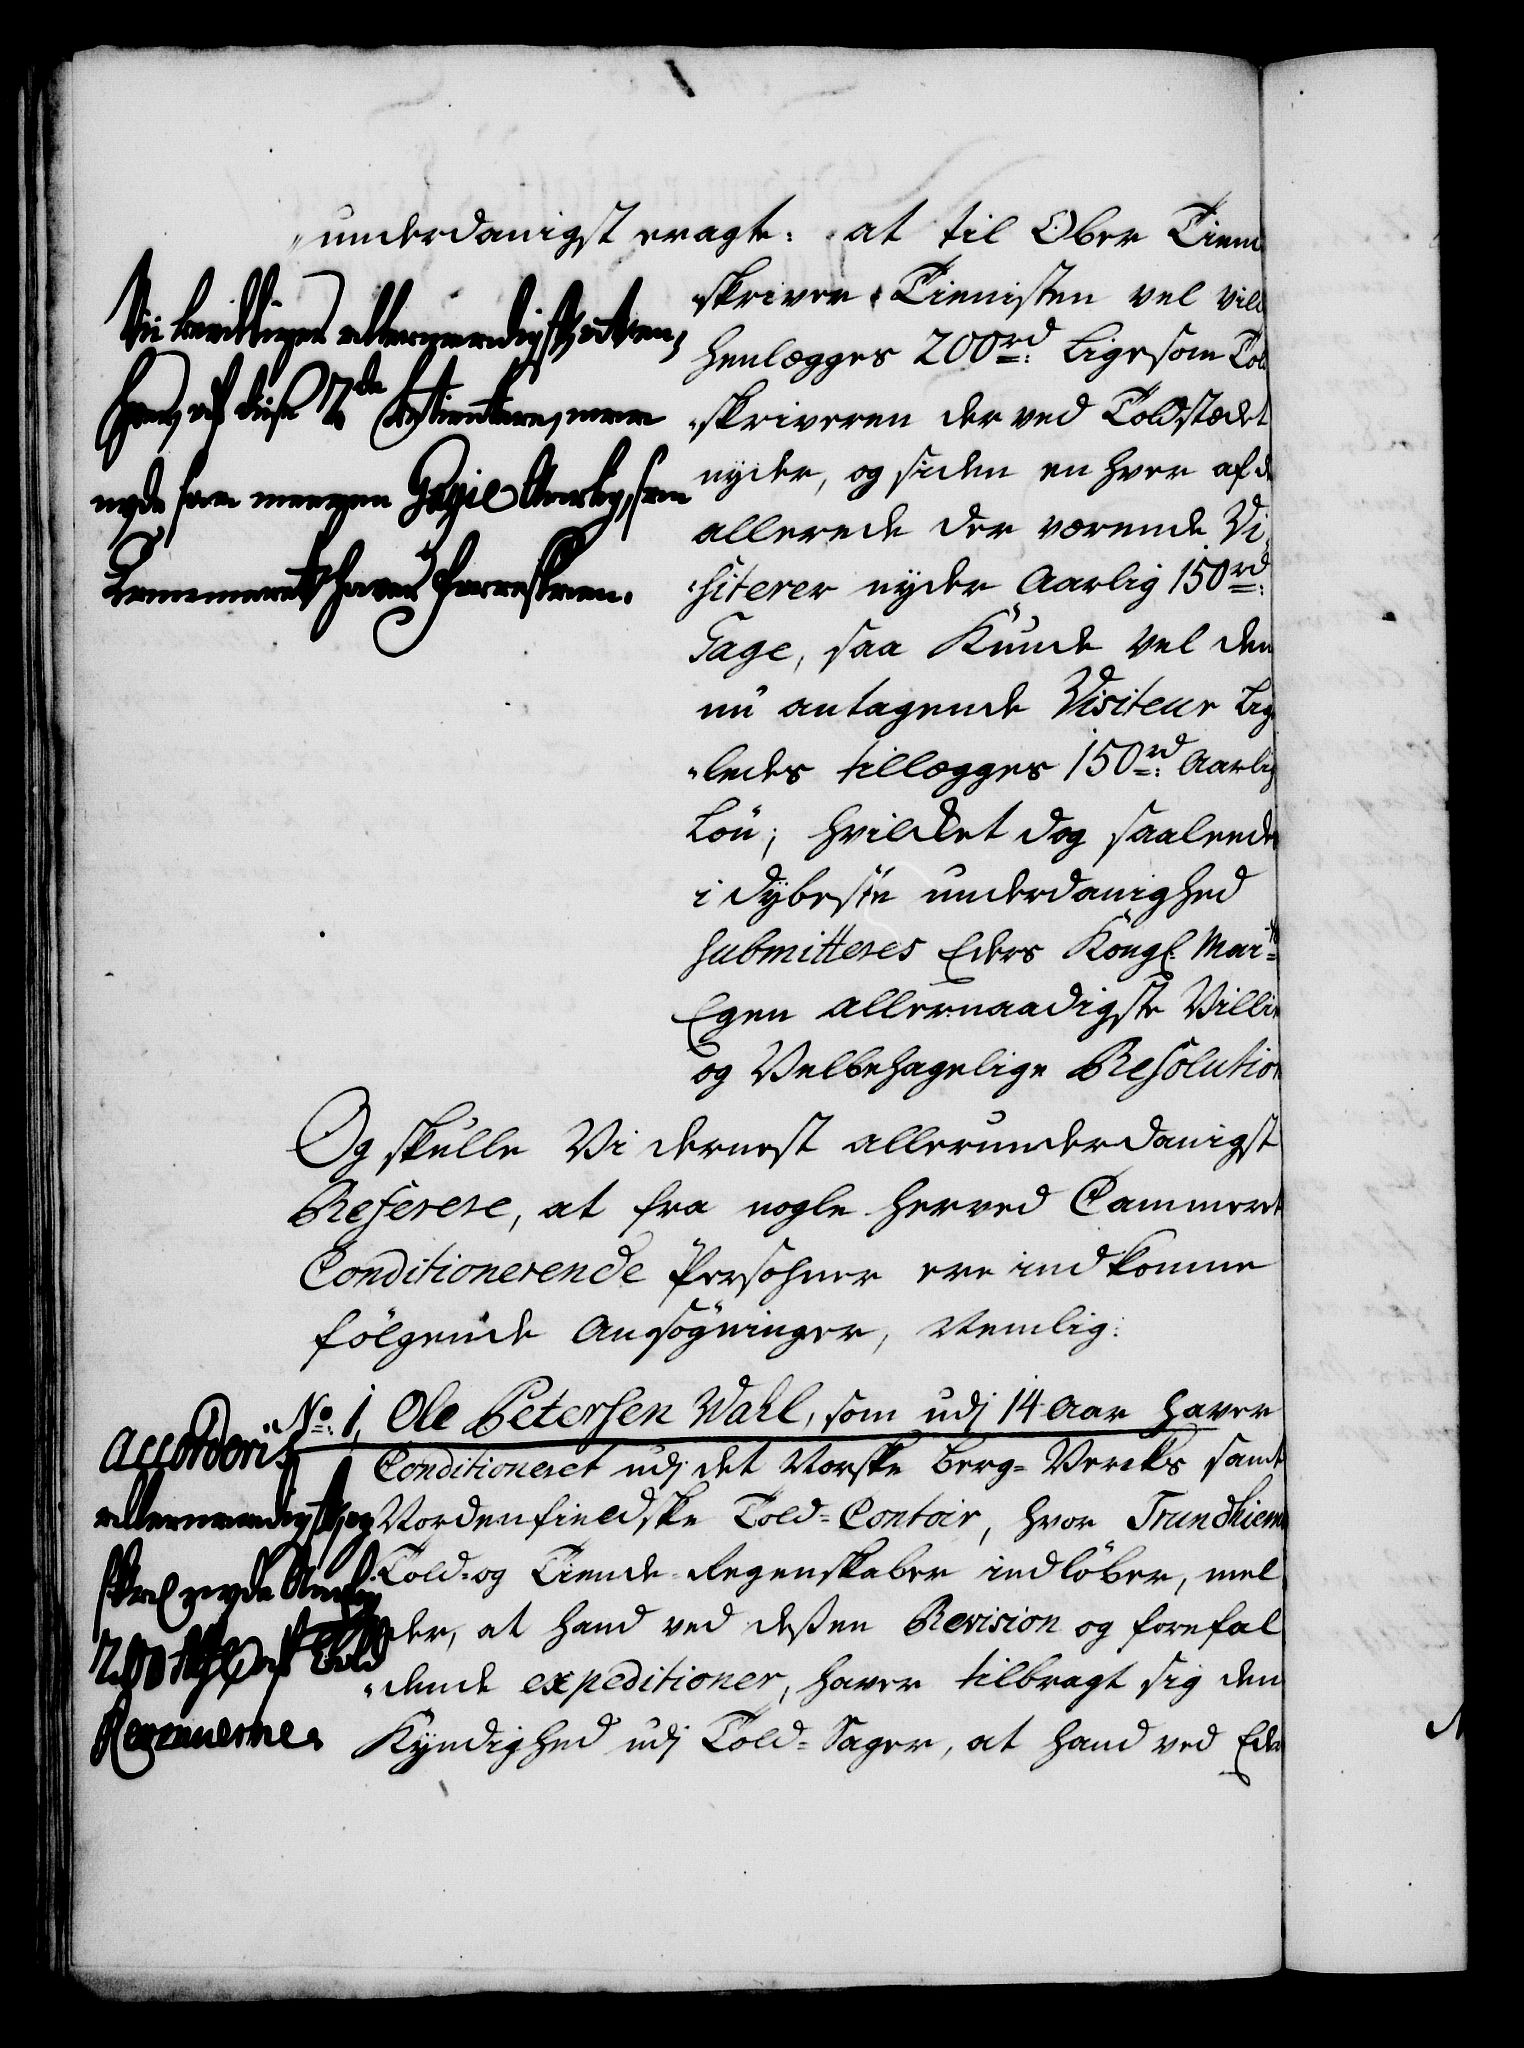 underdanigst eragte: at til Ober Tiend
skriver Tienisten vel ville
henlægges 200rd: Ligesom Told
skriveren der ved Toldstædet
nyder, og siden en hver af de
allerede der værende Vi
siterer nyder Aarlig 150rd:
Gage, saa Kunde vel den
nu antagende Visiteur Lige
ledes tillægges 150rd: Aarlig
Løn; hvilket dog saaleedes
i dybeste underdanighed
submitteres Eders Kongl: Maj:ts
Egen allernaadigste Villie
og Velbehagelige Resolution
Vii bevillger allernaadigst, at en
hver af disse 2de betientere, maa
nyde saa megen Gagie Aarlig, som
Cammeret haver foreslaaen.
Og skulle Vi dernest allerunderdanigst
Referere, at fra nogle herved Cammeret
Conditionerende Persohner ere indkomne
følgende Ansøgninger, Nemlig:
No: 1, Ole Petersen Wahl, som udj 14 Aar haver
Conditioneret udj det Norske Berg-Vercks samt
Nordenfieldske Told-Contoir, hvor Trundhiems
Told- og Tiende-Regenskaber indløber, mel
der, at hand ved dessen Revision og forefal
dende expeditioner, haver tilbragt sig den
Kyndighed udj Told-Sager, at hand ved Eders
Accorderis
allernaadigst, og
skal nyde Aarlig
200 Rdr af Told
Revenuerne.